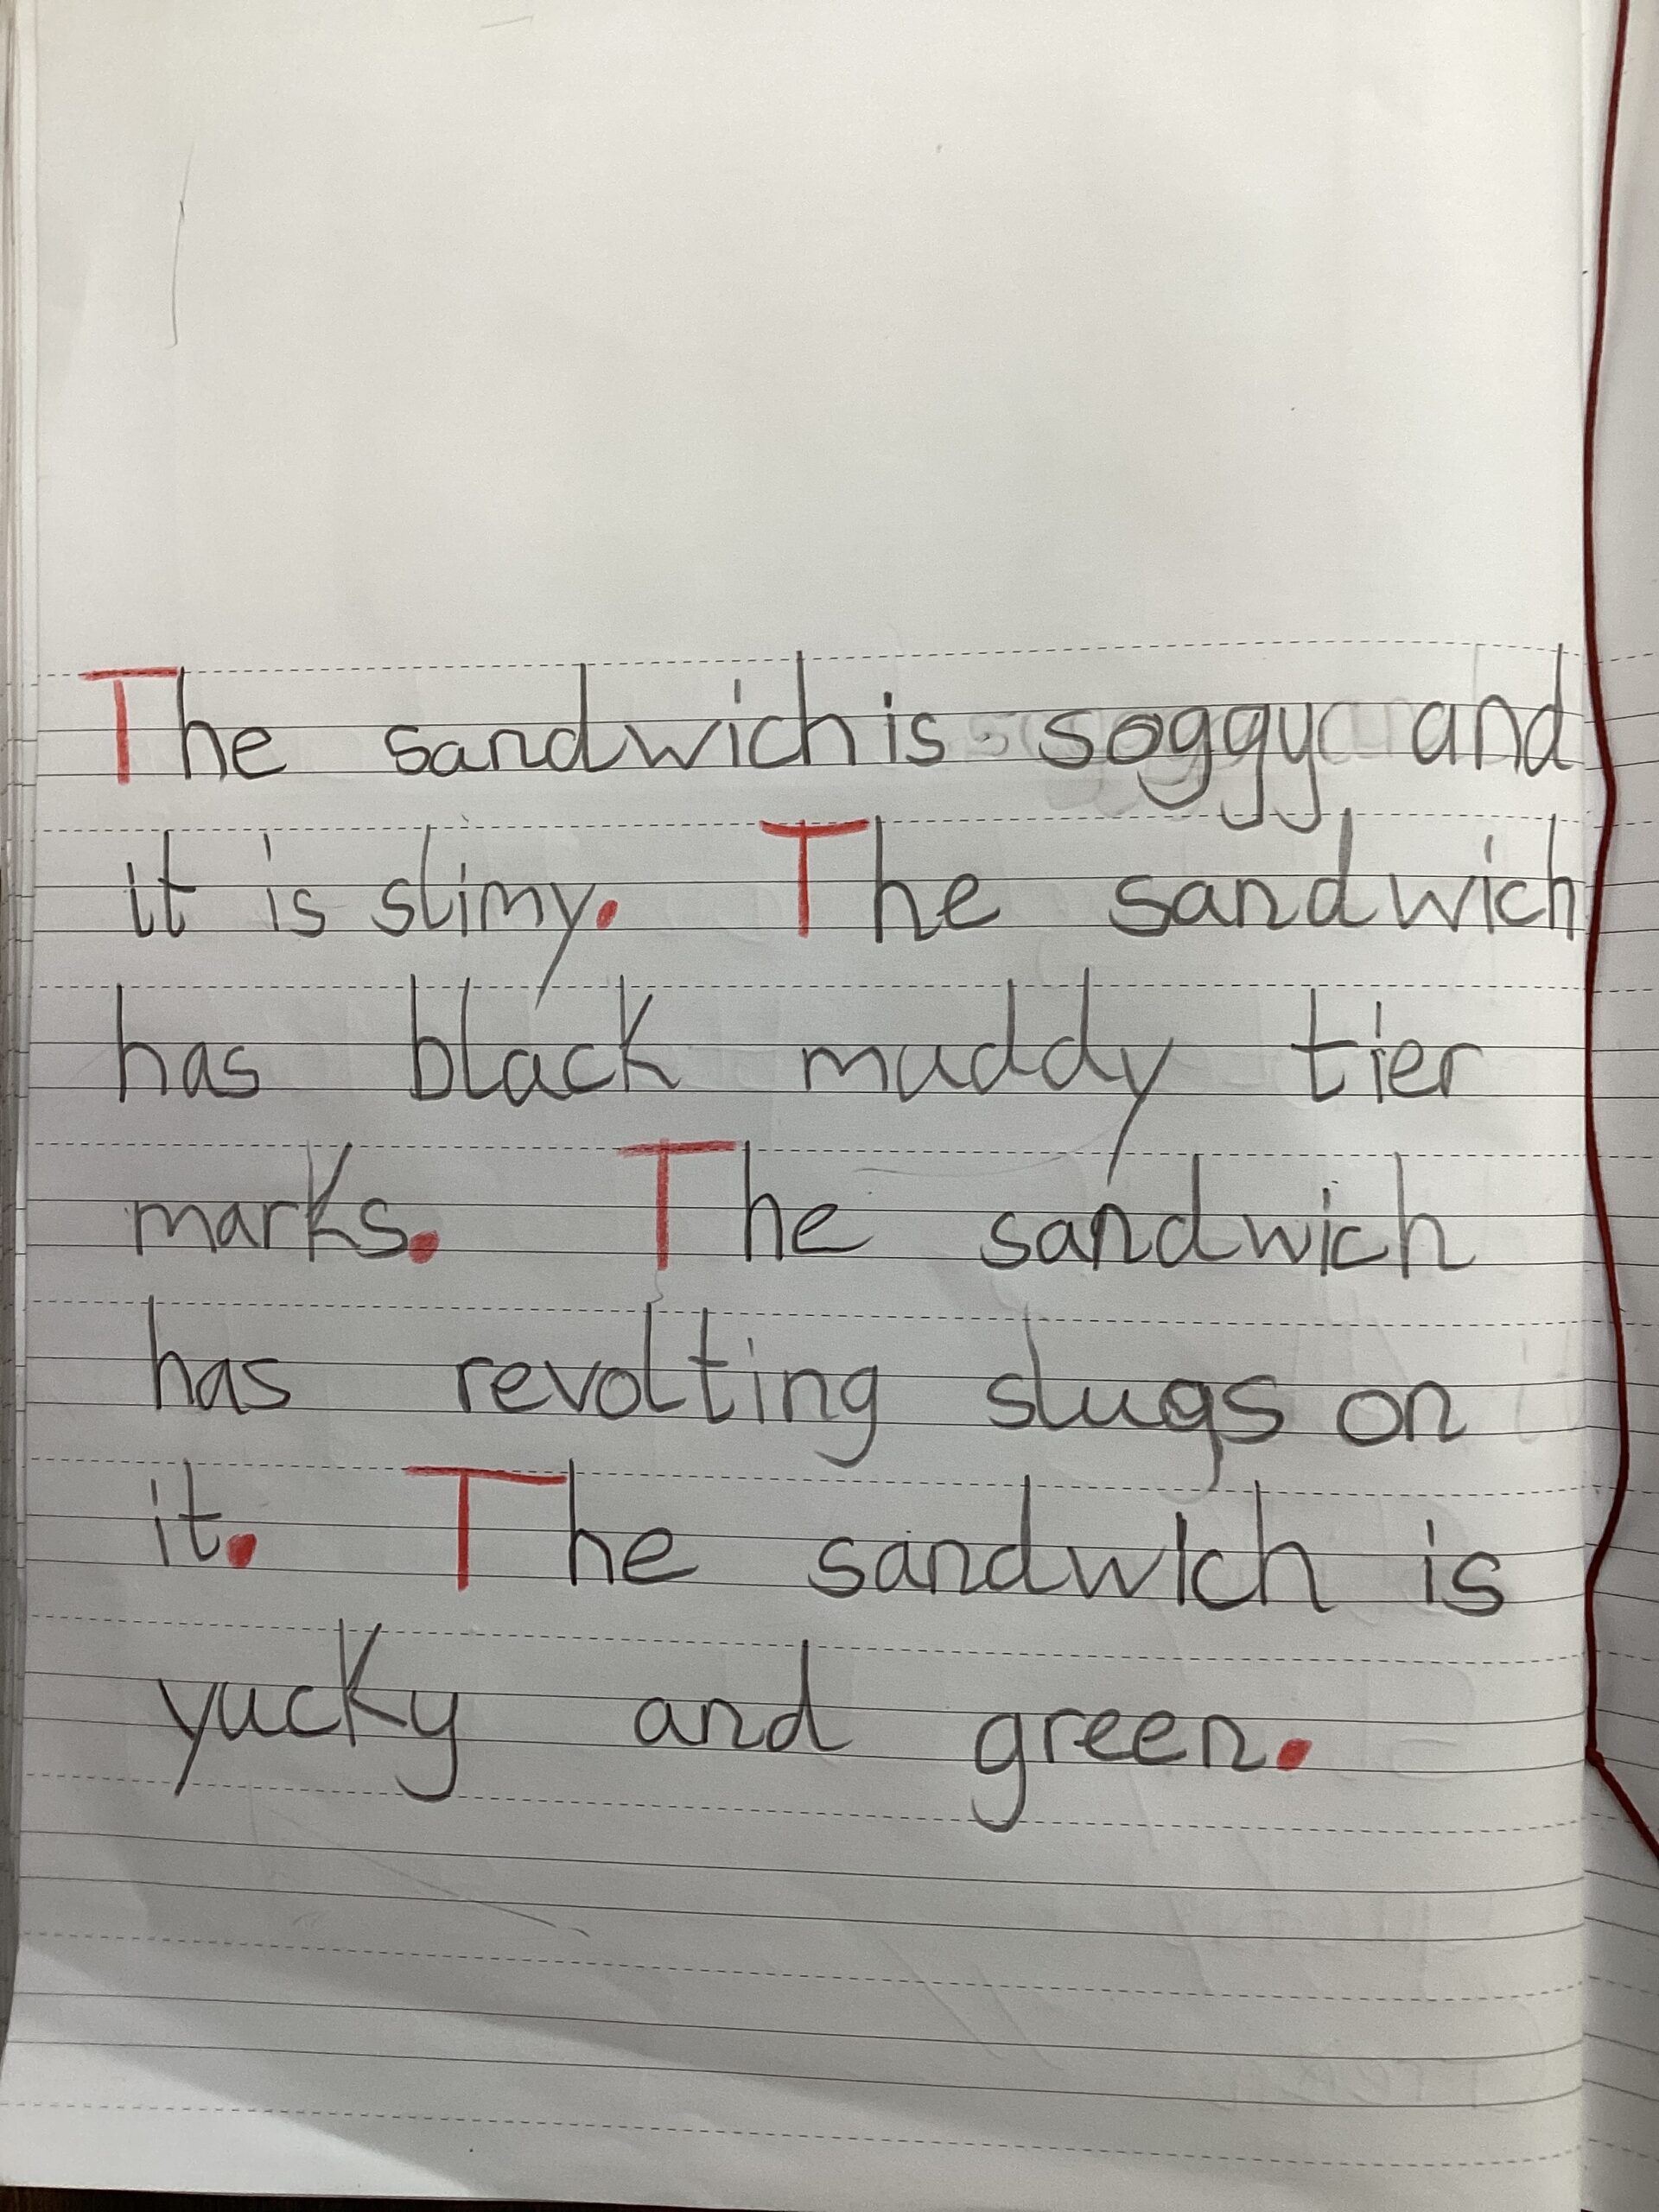 The sandwich is soggy and
it is slimy. The sandwich
has black muddy tier
marks. The sandwich
has revolting slugs on
it. The sandwich is
yucky and green.